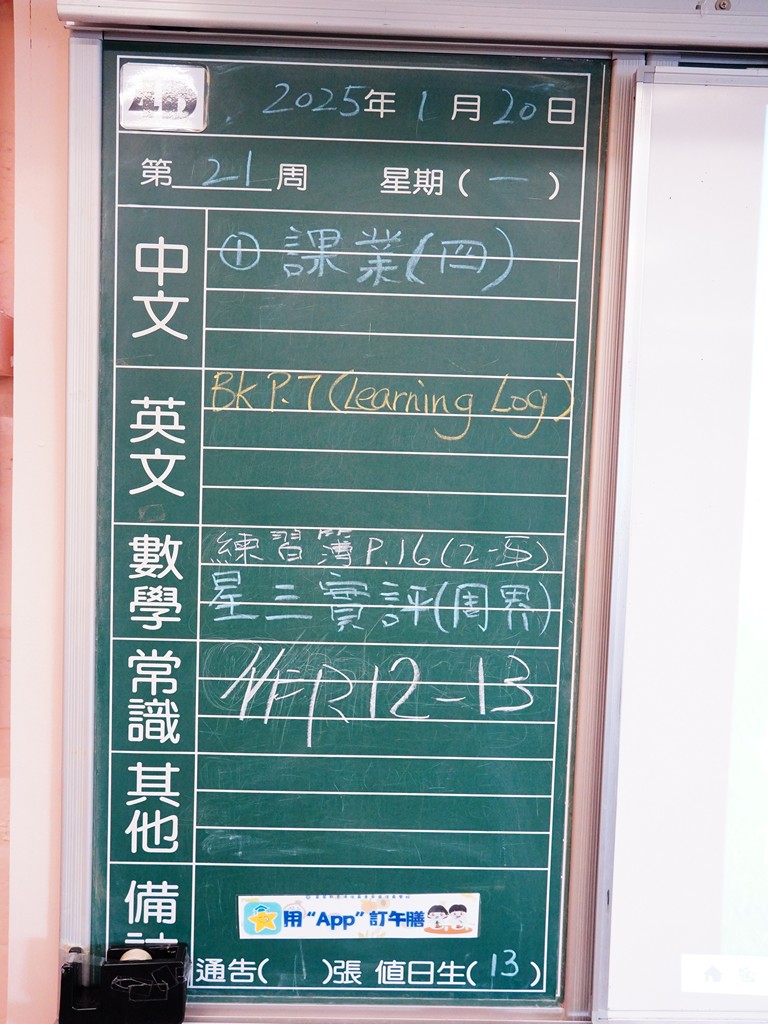 4D 2025年1月20日
第21周 星期(一)
中文
① 課業(四)
英文
Bk P.7 (Learning Log)
數學
練習簿 P.16 (2-5)
星三實評(周界)
常識
12-13
其他
備
用“App”訂午膳
通告( )張 值日生(13)